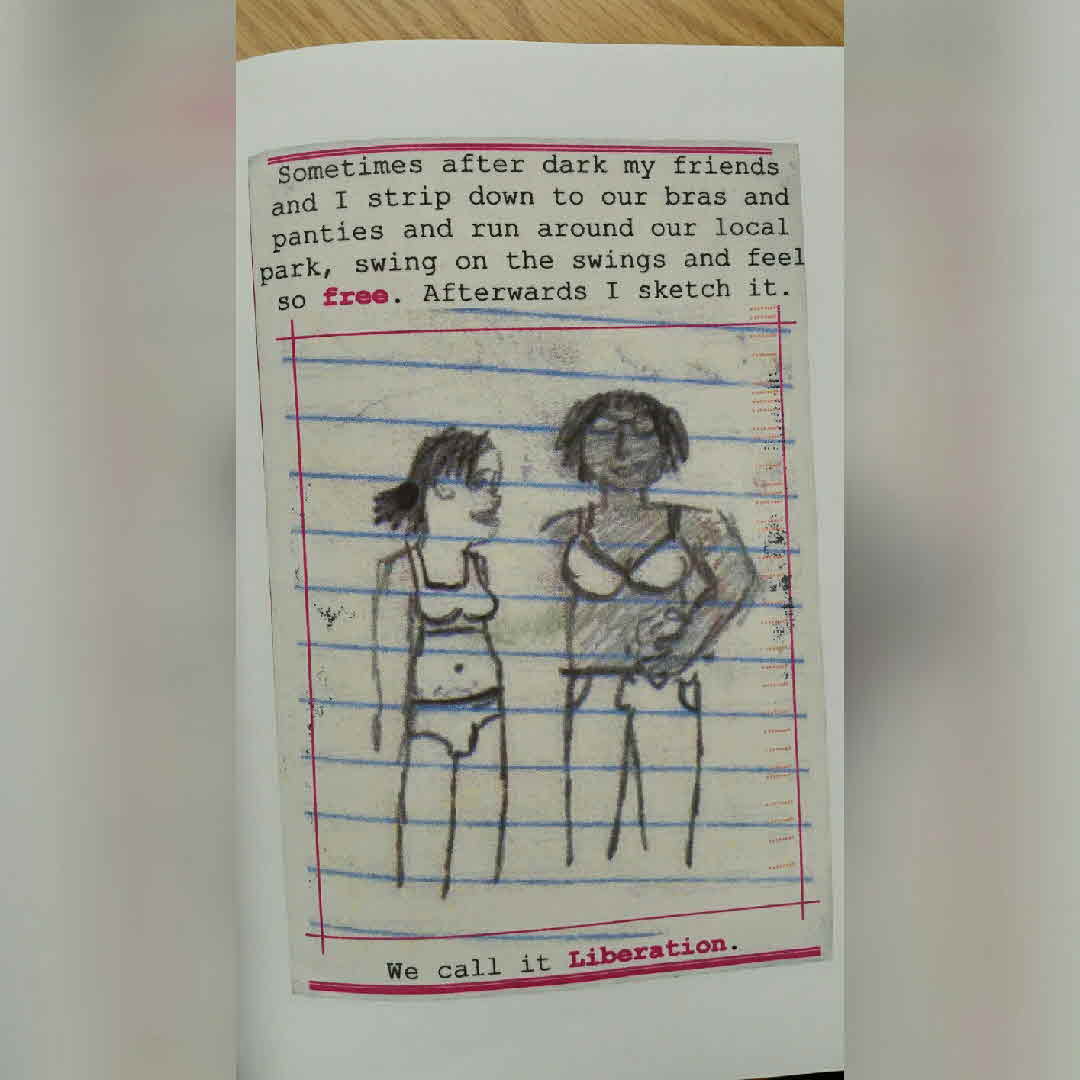 Sometimes after dark my friends
and I strip down to our bras and
panties and run around our local
park, swing on the swings and feel
so free. Afterwards I sketch it.
We call it Liberation.